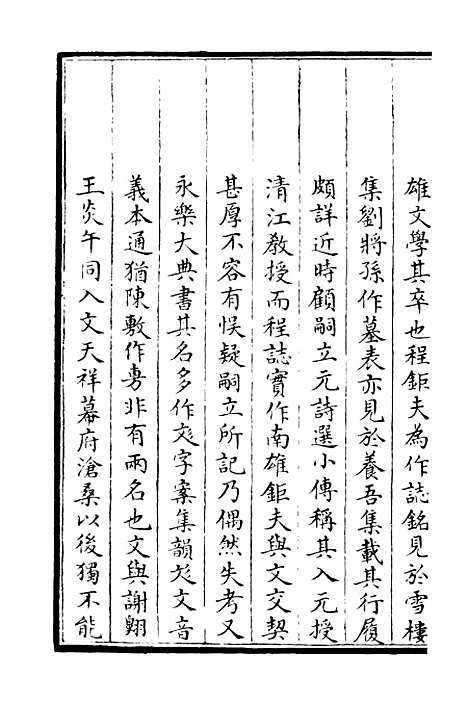 雄文學其卒也程鉅夫為作誌銘見於雪樓
集劉將孫作墓表亦見於養吾集載其行履
頗詳近時顧嗣立元詩選小傳稱其入元授
清江教授而程誌實作南雄鉅夫與文交契
甚厚不容有悞疑嗣立所記乃偶然失考又
永樂大典書其名多作彣字案集韻彣文音
義本通猶陳敷作旉非有兩名也文與謝翺
王炎午同入文天祥幕府滄桑以後獨不能